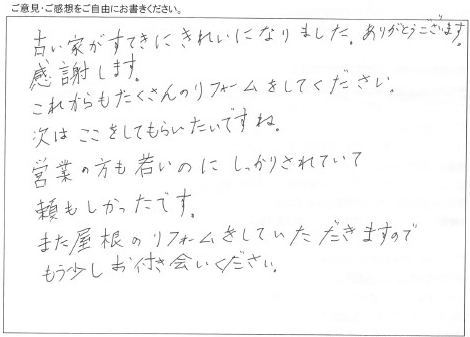 ご意見・ご感想をご自由にお書きください。
古い家がすてきにきれいになりました。ありがとうございます。
感謝します。
これからもたくさんのリフォームをしてください。
次はここをしてもらいたいですね。
営業の方も若いのにしっかりされていて
頼もしかったです。
また屋根のリフォームをしていただきますので
もう少しお付き会いください。